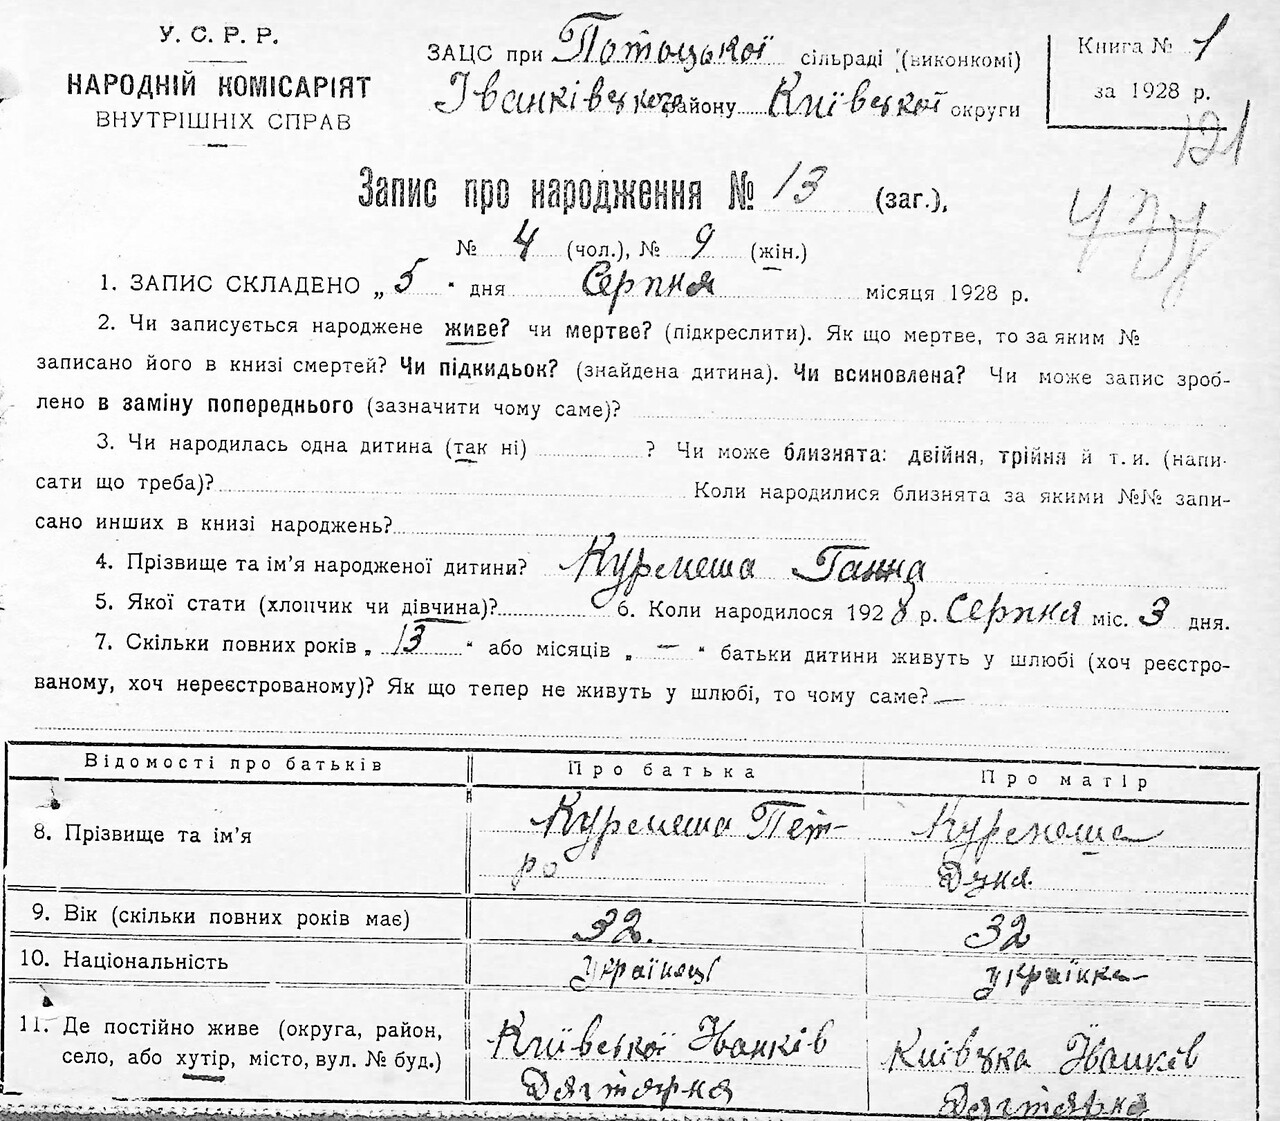 У. С. Р. Р.
НАРОДНІЙ КОМІСАРІЯТ
ВНУТРІШНІХ СПРАВ
ЗАЦС при Потоцької сільраді (виконкомі)
Іванківського району Київської округи
Книга № 1
за 1928 р.
121
Запис про народження № 13 (заг.),
№ 4 (чол.), № 9 (жін.)
1. ЗАПИС СКЛАДЕНО „ 5 " дня Серпня місяця 1928 р.
2. Чи записується народжене живе? чи мертве? (підкреслити). Як що мертве, то за яким №
записано його в книзі смертей? Чи підкидьок? (знайдена дитина). Чи всиновлена? Чи може запис зроб-
лено в заміну попереднього (зазначити чому саме)?
3. Чи народилась одна дитина (так ні) ? Чи може близнята: двійня, трійня й т. и. (напи-
сати що треба)? Коли народилися близнята за якими №№ запи-
сано инших в книзі народжень?
4. Прізвище та ім'я народженої дитини? Курмеша Ганна
5. Якої стати (хлопчик чи дівчина)? 6. Коли народилося 1928 р. Серпня міс. 3 дня.
7. Скільки повних років „ 13 " або місяців „ — " батьки дитини живуть у шлюбі (хоч реєстро-
ваному, хоч нереєстрованому)? Як що тепер не живуть у шлюбі, то чому саме? —
Відомості про батьків Про батька Про матір
8. Прізвище та ім'я Курмеша Пет-
ро Курмеша
Дуня
9. Вік (скільки повних років має) 32. 32
10. Національність українець українка
11. Де постійно живе (округа, район,
село, або хутір, місто, вул. № буд.)
Київської Іванків
Дягтярка
Київська Іванків
Дягтярка